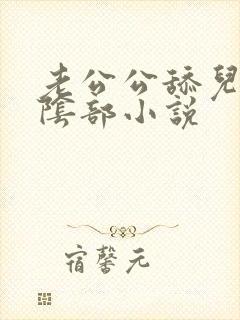 老公公舔兒
陰部小说
宿馨元